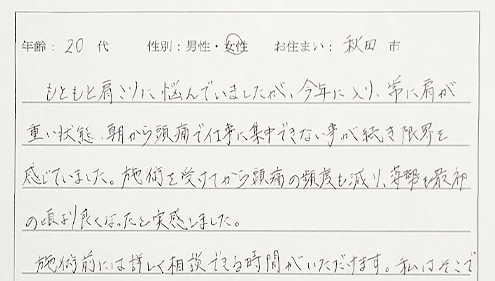 年齢：20代 性別：男性・女性 お住まい：秋田市
もともと肩こりに悩んでいましたが、今年に入り、常に肩が
重い状態、朝から頭痛で仕事に集中できない事が続き限界を
感じていました。施術を受けてから頭痛の頻度も減り、姿勢も最初
の頃より良くなったと実感しました。
施術前には詳しく相談できる時間がいただけます。私はそこで